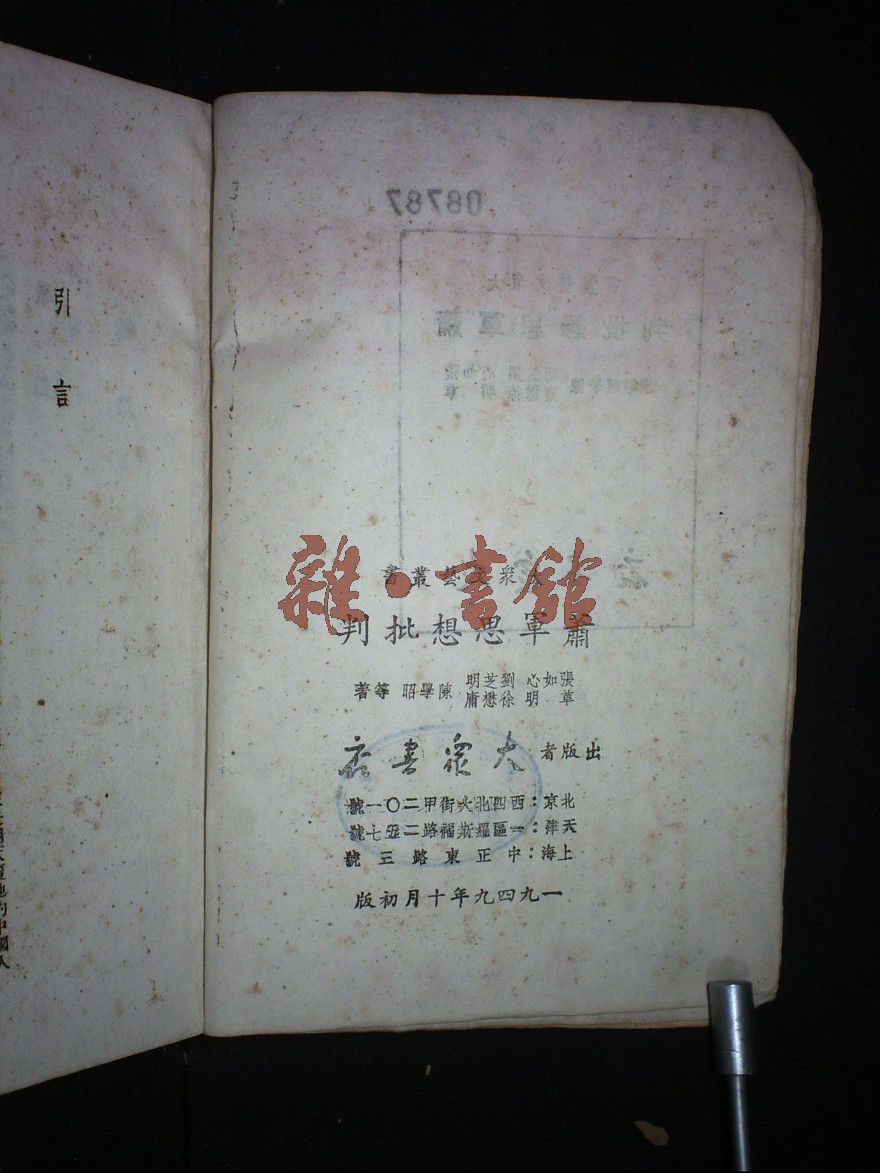 大衆文藝叢書
蕭軍思想批判
張如心 劉芝明 陳學昭 等著
草明 徐懋庸
出版者 大衆書店
北京：西四北大街甲二〇一號
天津：一區羅斯福路二五七號
上海：中正東路三號
一九四九年十月初版
引言
雜·書館
08787